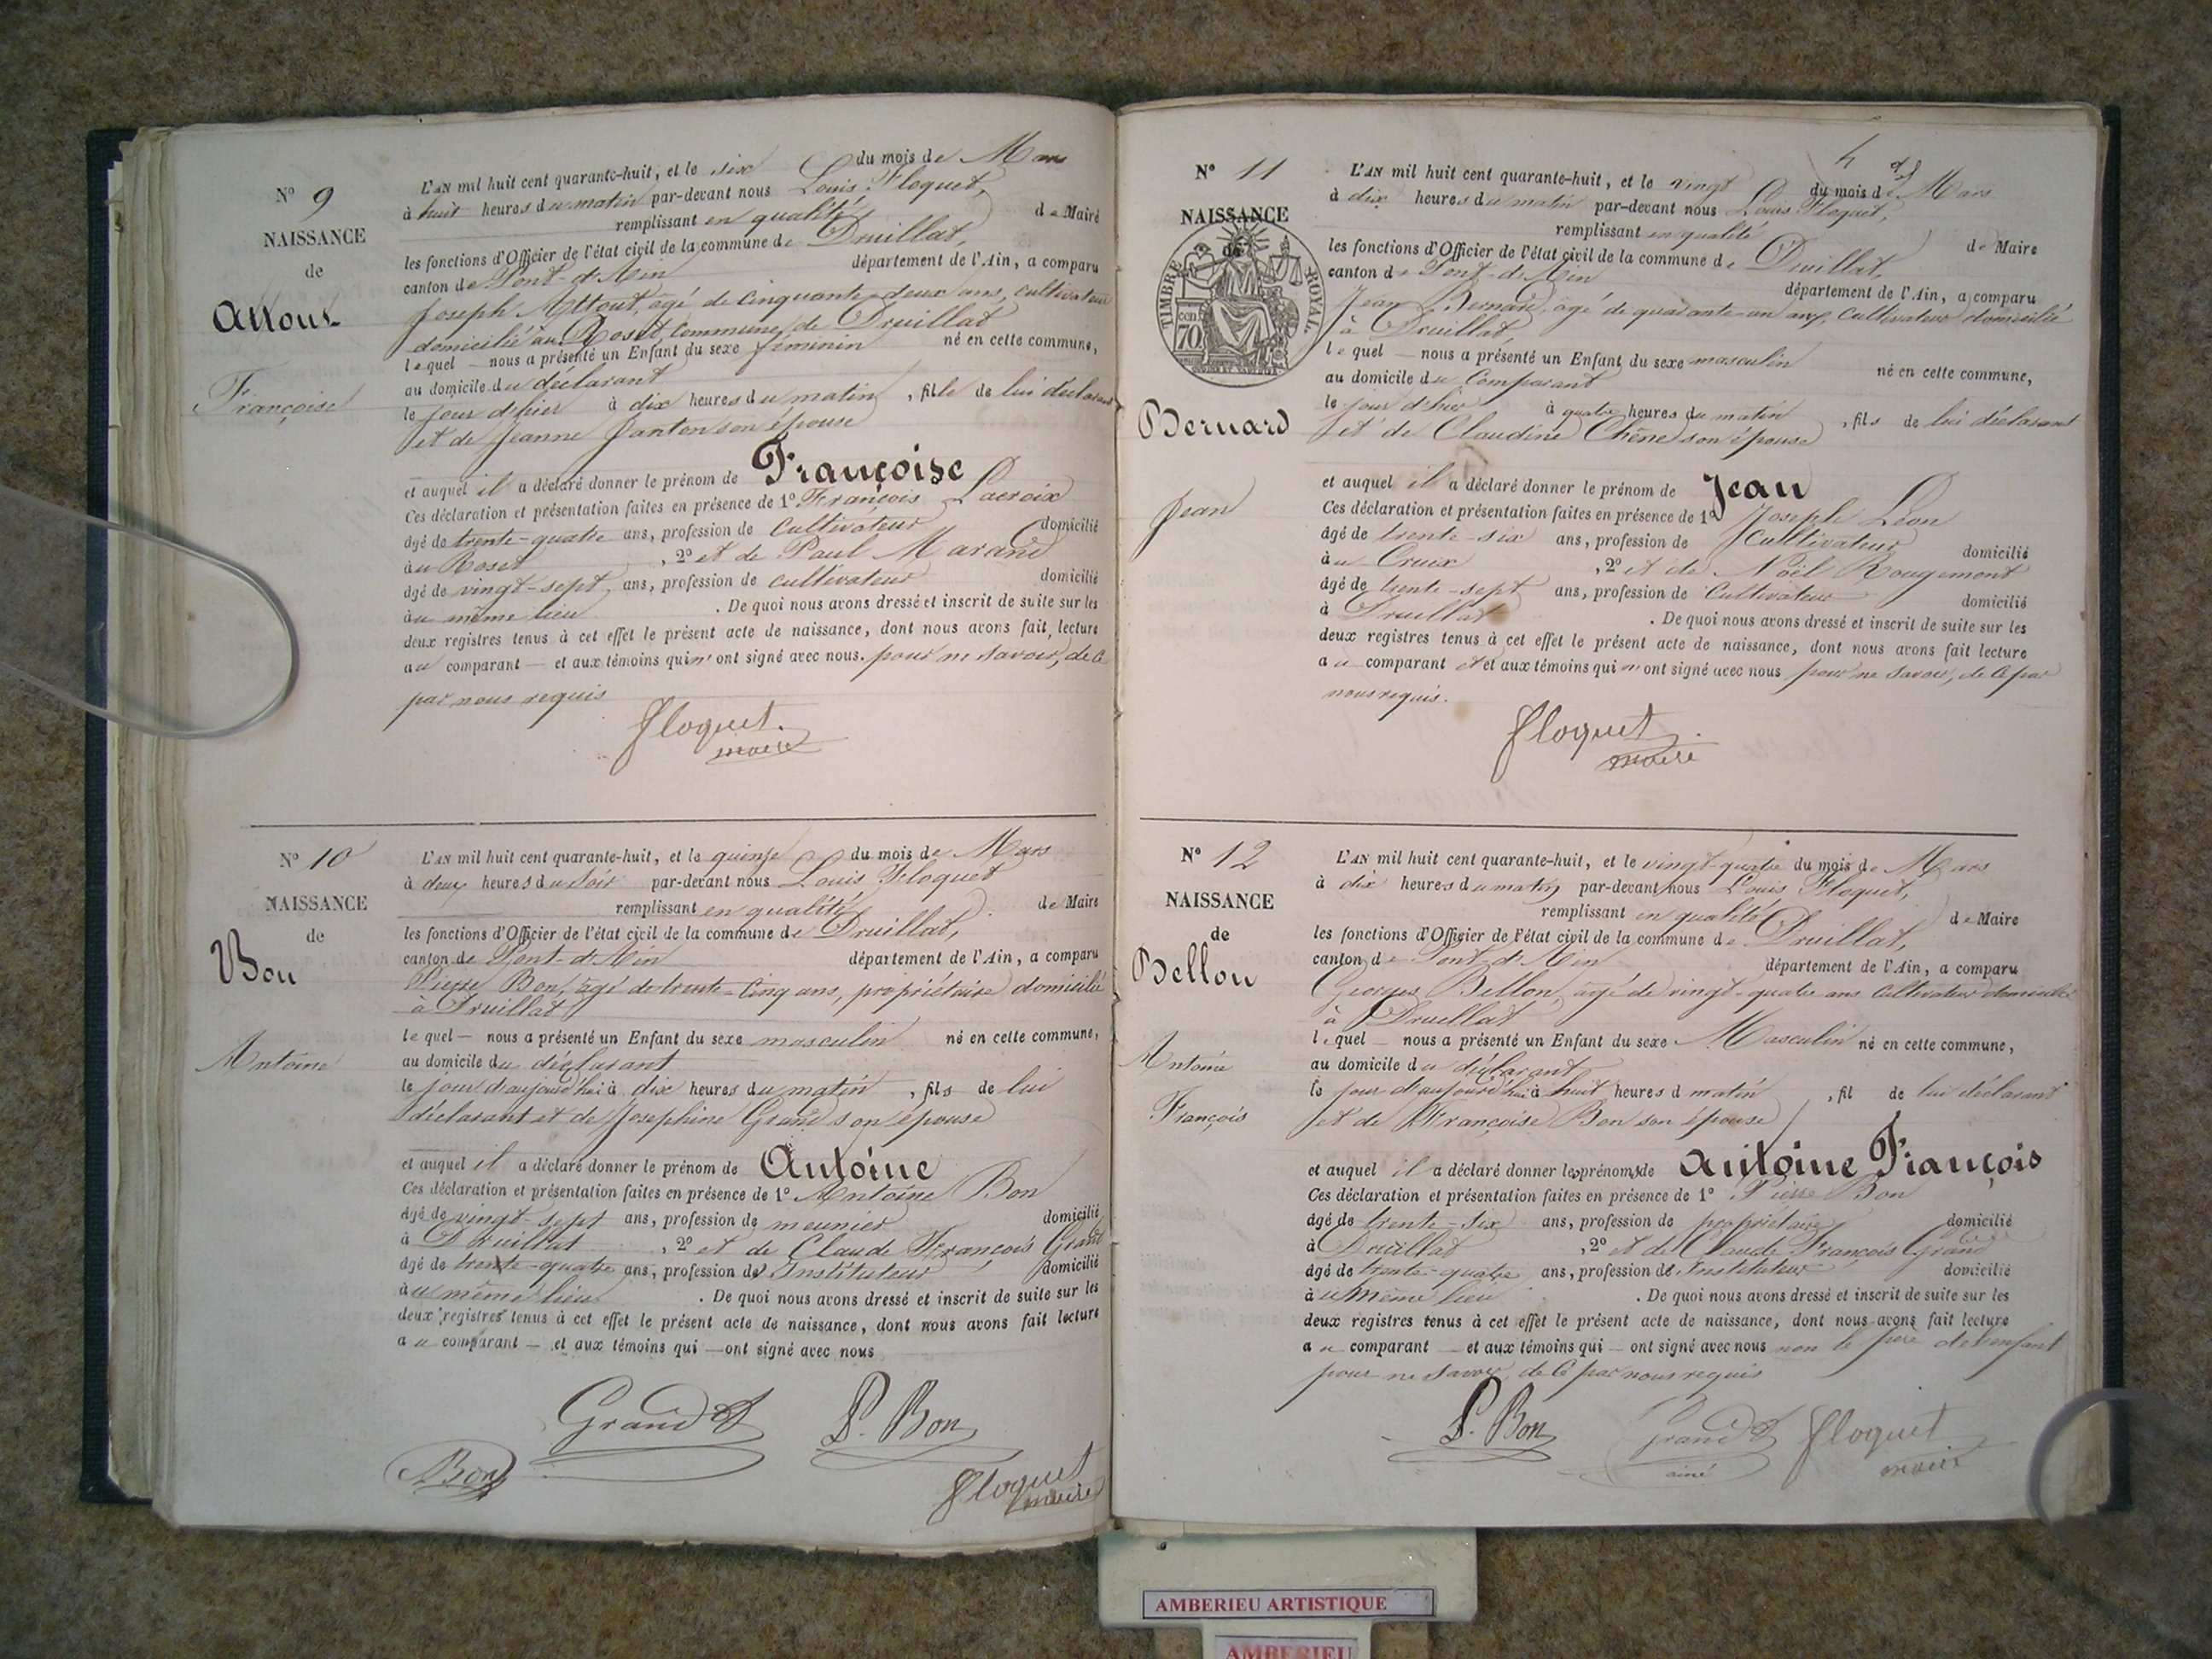 N° 9
NAISSANCE
de
Attout
Françoise
L'AN mil huit cent quarante-huit, et le six du mois de Mars
à huit heures du matin par-devant nous Louis Floquet,
remplissant en qualité de Maire
les fonctions d'Officier de l'état civil de la commune de Druillat,
canton de Pont-d'Ain département de l'Ain, a comparu
Joseph Attout, agé de cinquante-deux ans, cultivateur
domicilié au Roset, commune de Druillat
lequel nous a présenté un Enfant du sexe féminin né en cette commune,
au domicile du déclarant
le jour d'hier à dix heures du matin, fille de lui déclarant
et de Jeanne Janton son épouse
et auquel il a déclaré donner le prénom de Françoise
Ces déclaration et présentation faites en présence de 1° François Lacroix
âgé de trente-quatre ans, profession de cultivateur domicilié
au Roset, 2° et de Paul Marand
âgé de vingt-sept ans, profession de cultivateur domicilié
au même lieu. De quoi nous avons dressé et inscrit de suite sur les
deux registres tenus à cet effet le présent acte de naissance, dont nous avons fait lecture
au comparant — et aux témoins qui n'ont signé avec nous. pour ne savoir, de ce
par nous requis
Floquet
maire
N° 10
NAISSANCE
de
Bon
Antoine
L'AN mil huit cent quarante-huit, et le quinze du mois de Mars
à deux heures du soir par-devant nous Louis Floquet
remplissant en qualité de Maire
les fonctions d'Officier de l'état civil de la commune de Druillat,
canton de Pont-d'Ain département de l'Ain, a comparu
Pierre Bon, âgé de trente-cinq ans, propriétaire domicilié
à Druillat
lequel — nous a présenté un Enfant du sexe masculin né en cette commune,
au domicile du déclarant
le jour d'aujourd'hui à dix heures du matin, fils de lui
déclarant et de Josephine Grand son épouse
et auquel il a déclaré donner le prénom de Antoine
Ces déclaration et présentation faites en présence de 1° Antoine Bon
âgé de vingt-sept ans, profession de meunier domicilié
à Druillat, 2° et de Claude François Grand
âgé de trente-quatre ans, profession d'Instituteur domicilié
au même lieu. De quoi nous avons dressé et inscrit de suite sur les
deux registres tenus à cet effet le présent acte de naissance, dont nous avons fait lecture
au comparant — et aux témoins qui — ont signé avec nous
Grand P. Bon
Bon Floquet
maire
4
N° 11
NAISSANCE
de
TIMBRE ROYAL
70 cen
Bernard
Jean
L'AN mil huit cent quarante-huit, et le vingt du mois de Mars
à dix heures du matin par-devant nous Louis Floquet,
remplissant en qualité de Maire
les fonctions d'Officier de l'état civil de la commune de Druillat,
canton de Pont-d'Ain département de l'Ain, a comparu
Jean Bernard, âgé de quarante-un ans, cultivateur domicilié
à Druillat,
lequel — nous a présenté un Enfant du sexe masculin né en cette commune,
au domicile du comparant
le jour d'hier à quatre heures du matin, fils de lui déclarant
et de Claudine Chêne son épouse
et auquel il a déclaré donner le prénom de Jean
Ces déclaration et présentation faites en présence de 1° Joseph Léon
âgé de trente-six ans, profession de Cultivateur domicilié
au Cruix, 2° et de Noël Rougemont
âgé de trente-sept ans, profession de Cultivateur domicilié
à Druillat. De quoi nous avons dressé et inscrit de suite sur les
deux registres tenus à cet effet le présent acte de naissance, dont nous avons fait lecture
au comparant et aux témoins qui n'ont signé avec nous pour ne savoir, de ce par
nous requis.
Floquet
maire
N° 12
NAISSANCE
de
Bellon
Antoine
François
L'AN mil huit cent quarante-huit, et le vingt-quatre du mois de Mars
à dix heures du matin par-devant nous Louis Floquet,
remplissant en qualité de Maire
les fonctions d'Officier de l'état civil de la commune de Druillat,
canton de Pont-d'Ain département de l'Ain, a comparu
Georges Bellon, âgé de vingt-quatre ans cultivateur domicilié
à Druillat
lequel nous a présenté un Enfant du sexe Masculin né en cette commune,
au domicile du déclarant
le jour d'aujourd'hui à huit heures d matin, fil de lui déclarant
et de Françoise Bon son épouse
et auquel il a déclaré donner les prénoms de Antoine François
Ces déclaration et présentation faites en présence de 1° Pierre Bon
âgé de trente-six ans, profession de propriétaire domicilié
à Druillat, 2° et de Claude François Grand
âgé de trente-quatre ans, profession d'Instituteur domicilié
au même lieu. De quoi nous avons dressé et inscrit de suite sur les
deux registres tenus à cet effet le présent acte de naissance, dont nous avons fait lecture
au comparant — et aux témoins qui — ont signé avec nous non le père de l'enfant
pour ne savoir, de ce par nous requis
P. Bon Grand Floquet
ainé maire
AMBERIEU ARTISTIQUE
AMBERIEU